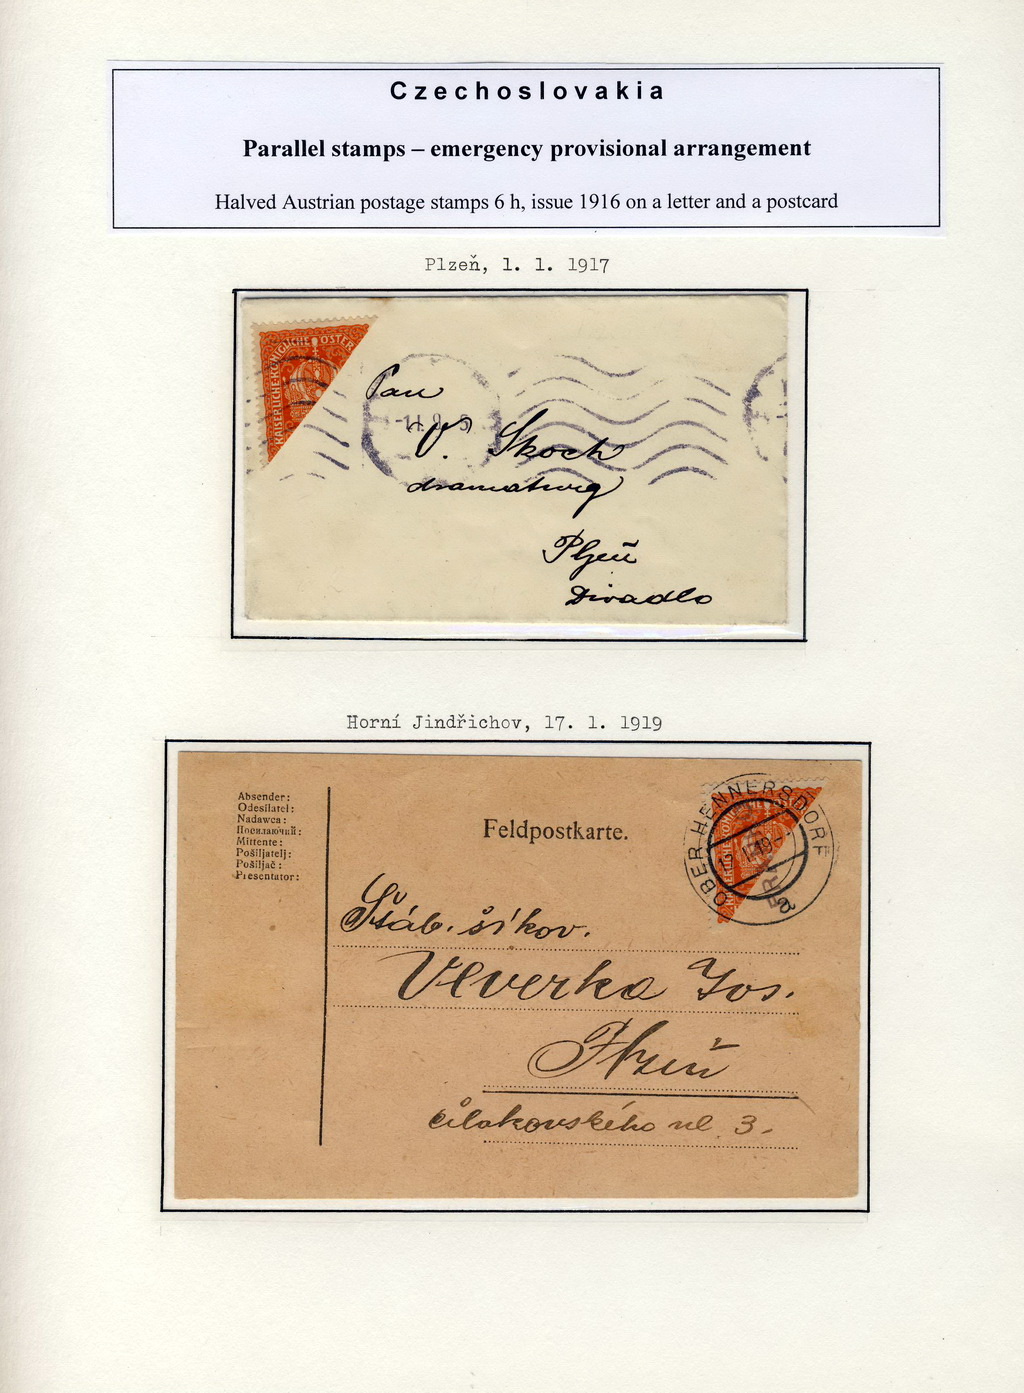 Czechoslovakia
Parallel stamps – emergency provisional arrangement
Halved Austrian postage stamps 6 h, issue 1916 on a letter and a postcard
Plzeň, 1. 1. 1917
KAISERLICHE KÖNIGLICHE ÖSTER
Pan
V. Skoch
dramaturg
Plzeň
Divadlo
Horní Jindřichov, 17. 1. 1919
Absender:
Odesílatel:
Nadawca:
Посилаючий:
Mittente:
Pošiljatelj:
Pošiljač:
Presentator:
Feldpostkarte.
OBER HENNERSDORF
a
Štáb. šikov.
Veverka Jos.
Plzeň
ul. 3.